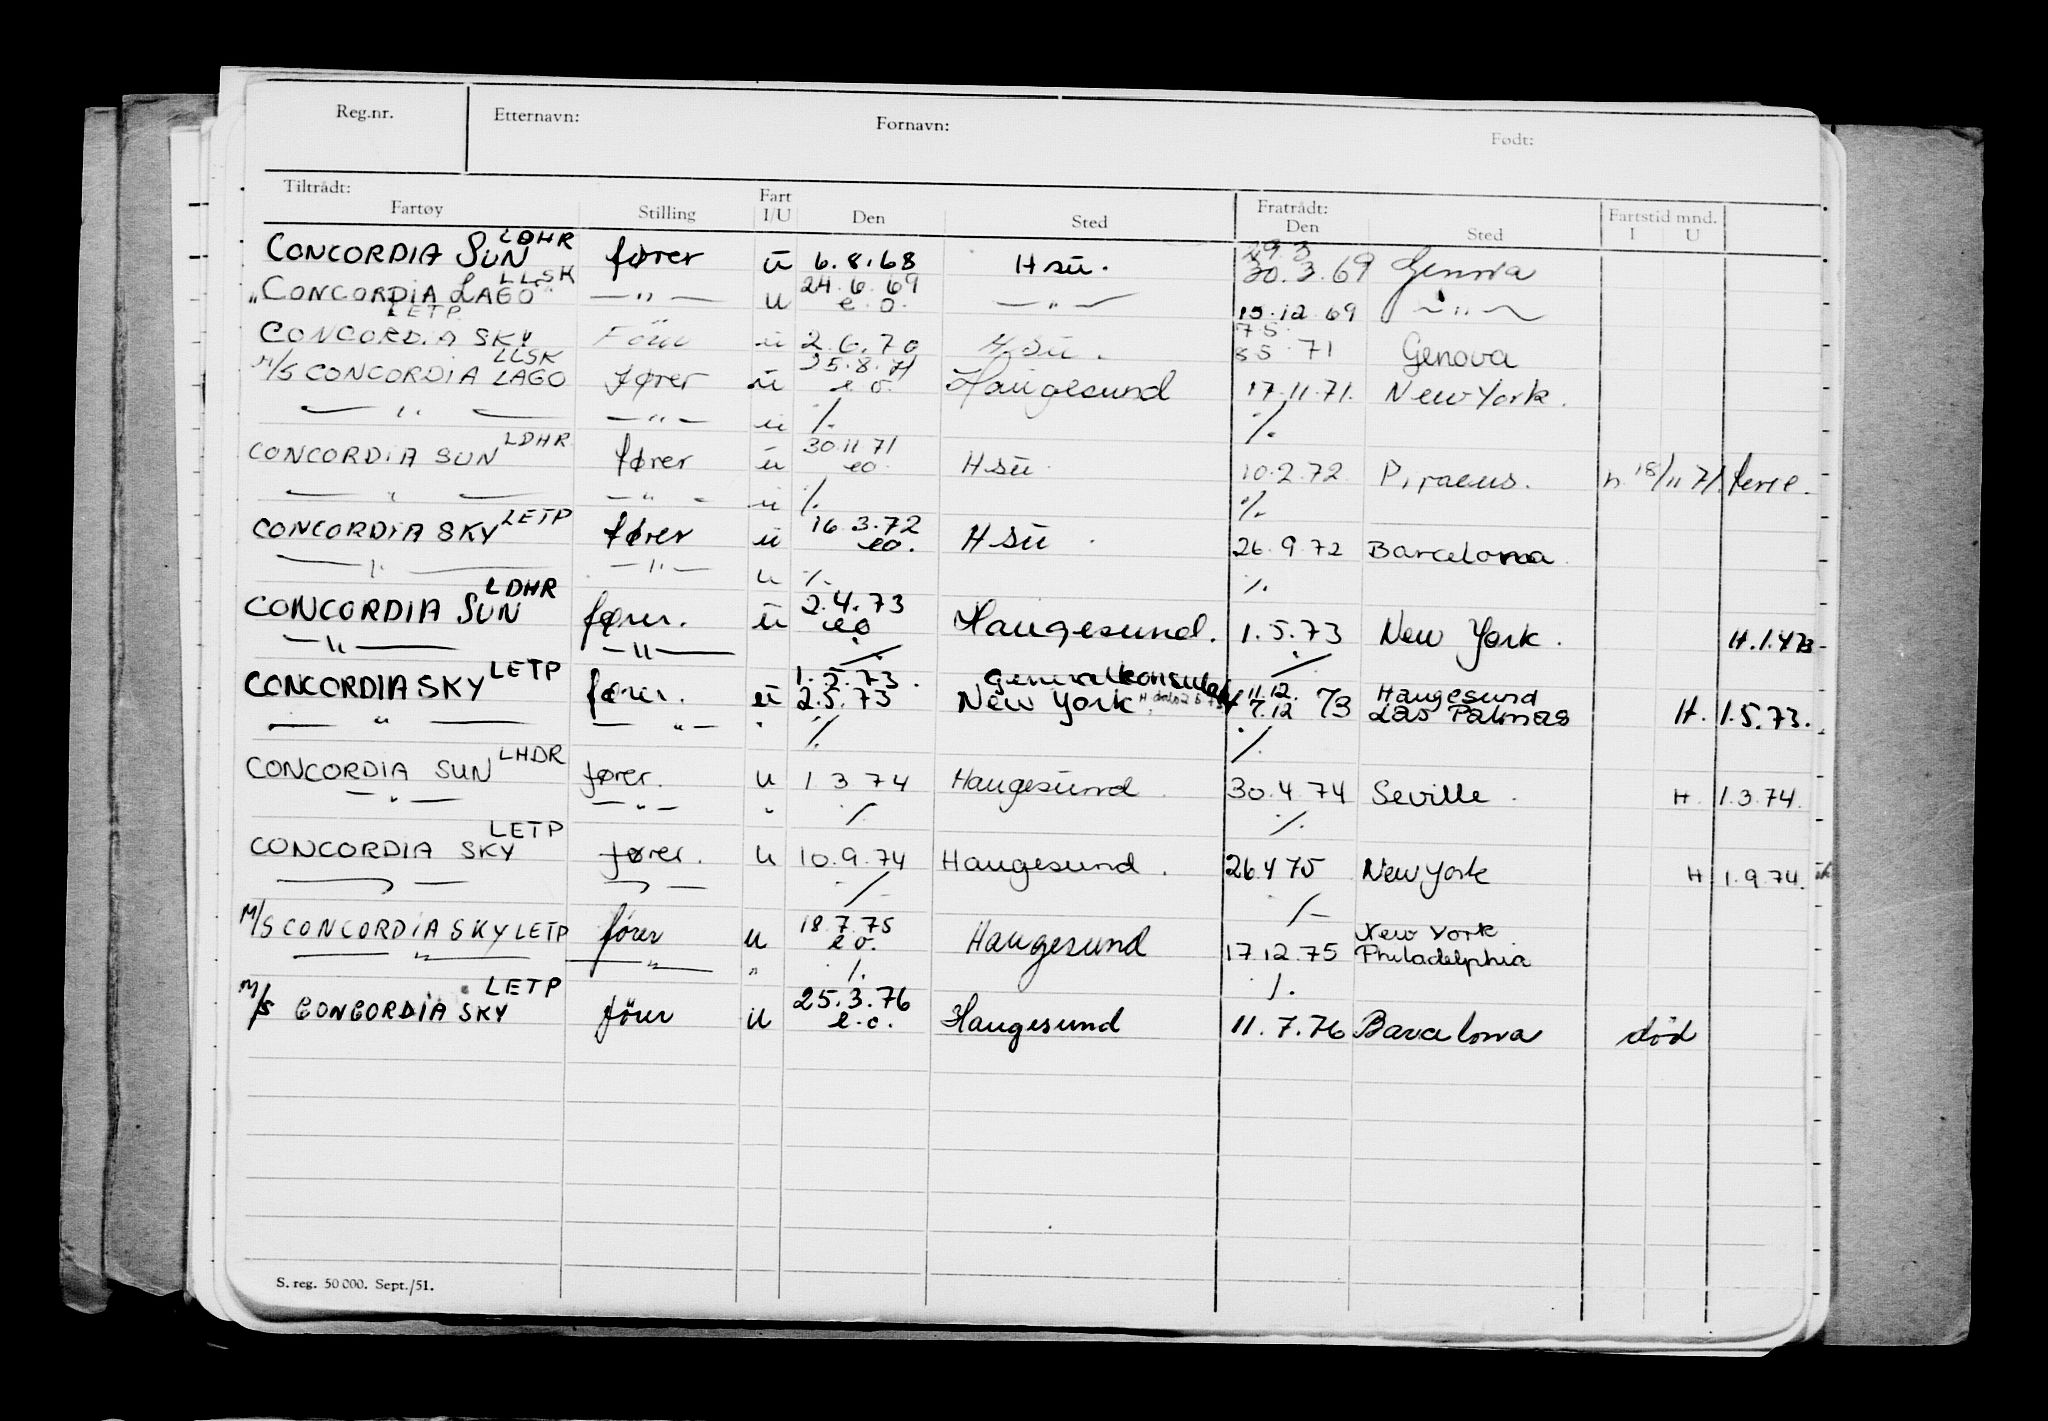 Reg.nr. Etternavn: Fornavn: Født:
Tiltrådt: Fartøy Stilling Fart I/U Den Sted Fratrådt: Den Sted Fartstid mnd. I U
CONCORDIA SUN LDHR fører ū 6.8.68 Hsū. 29.3 30.3.69 Genova
"CONCORDIA LAGO" LLSK — " — u 24.6.69 e.o. — " — 15.12.69 — " —
CONCORDIA SKY LETP Förer ū 2.6.70 Hsū. 7.5. 71 Genova
M/S CONCORDIA LAGO LLSK fører ū 25.8.71 e.o. Haugesund 17.11.71. New York.
— " — — " — ū ⁒ ⁒
CONCORDIA SUN LDHR fører ū 30.11.71 eo. Hsū 10.2.72. Piraeus. h. 18/11 71.
— " — — " — ū ⁒ ⁒
CONCORDIA SKY LETP fører ū 16.3.72 eo. Hsū. 26.9.72 Barcelona
— " — — " — u ⁒ ⁒
CONCORDIA SUN LDHR fører. ū 2.4.73 eo Haugesund. 1.5.73 New York. H.1.4.73
— " — — " — ⁒ ⁒
CONCORDIA SKY LETP fører. ū 1.5.73. 2.5.73 Generalkonsulat New York 11.12. 7.12 73 Haugesund Las Palmas H. 1.5.73.
— " — — " — " ⁒ ⁒
CONCORDIA SUN LHDR fører. u 1.3.74 Haugesund. 30.4.74 Seville. H. 1.3.74.
— " — — " — " ⁒ ⁒
CONCORDIA SKY LETP fører. u 10.9.74 Haugesund. 26.4.75 New York H 1.9.74.
— " — — " — ⁒ ⁒
M/S CONCORDIA SKY LETP fører u 18.7.75 e.o. Haugesund 17.12.75 New York Philadelphia
— " — — " — " ⁒ ⁒
M/S CONCORDIA SKY LETP förer u 25.3.76 e.o. Haugesund 11.7.76 Barcelona död
S. reg. 50 000. Sept./51.